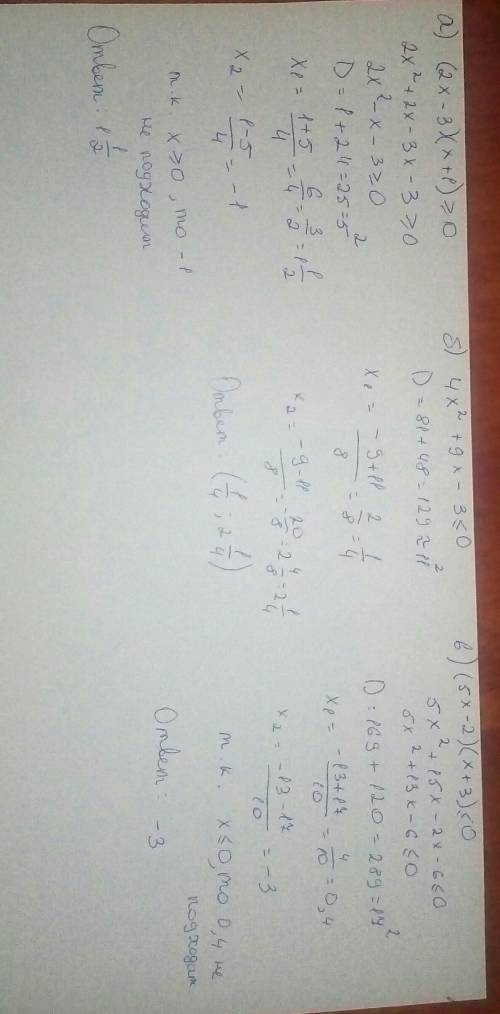 а) (2x-3)(x+1)≥0
2x²+2x-3x-3≥0
2x²-x-3≥0
D=1+24=25=5²
x₁=(1+5)/4=6/4=3/2=1 1/2
x₂=(1-5)/4=-1
т.к. x≥0, то -1
не подходит
Ответ: 1 1/2
б) 4x²+9x-3≤0
D=81+48=129≈11²
x₁=(-9+11)/8=2/8=1/4
x₂=(-9-11)/8=-20/8=2 4/8=2 1/4
Ответ: (1/4; 2 1/4)
в) (5x-2)(x+3)≤0
5x²+15x-2x-6≤0
5x²+13x-6≤0
D:169+120=289=17²
x₁=(-13+17)/10=4/10=0,4
x₂=(-13-17)/10=-3
т.к. x≤0, то 0,4 не
подходит
Ответ: -3